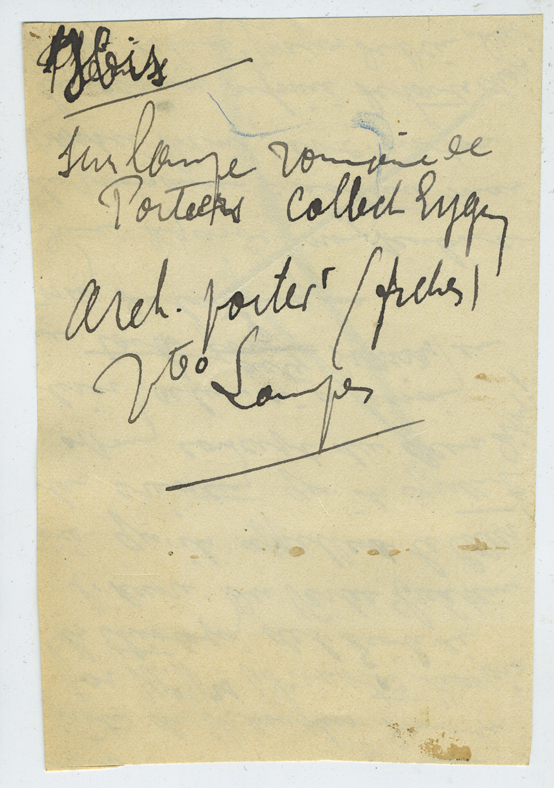 Ibis
sur lampe romaine de
Poitiers collect
Arch. poitev (fiches)
V° Lampes